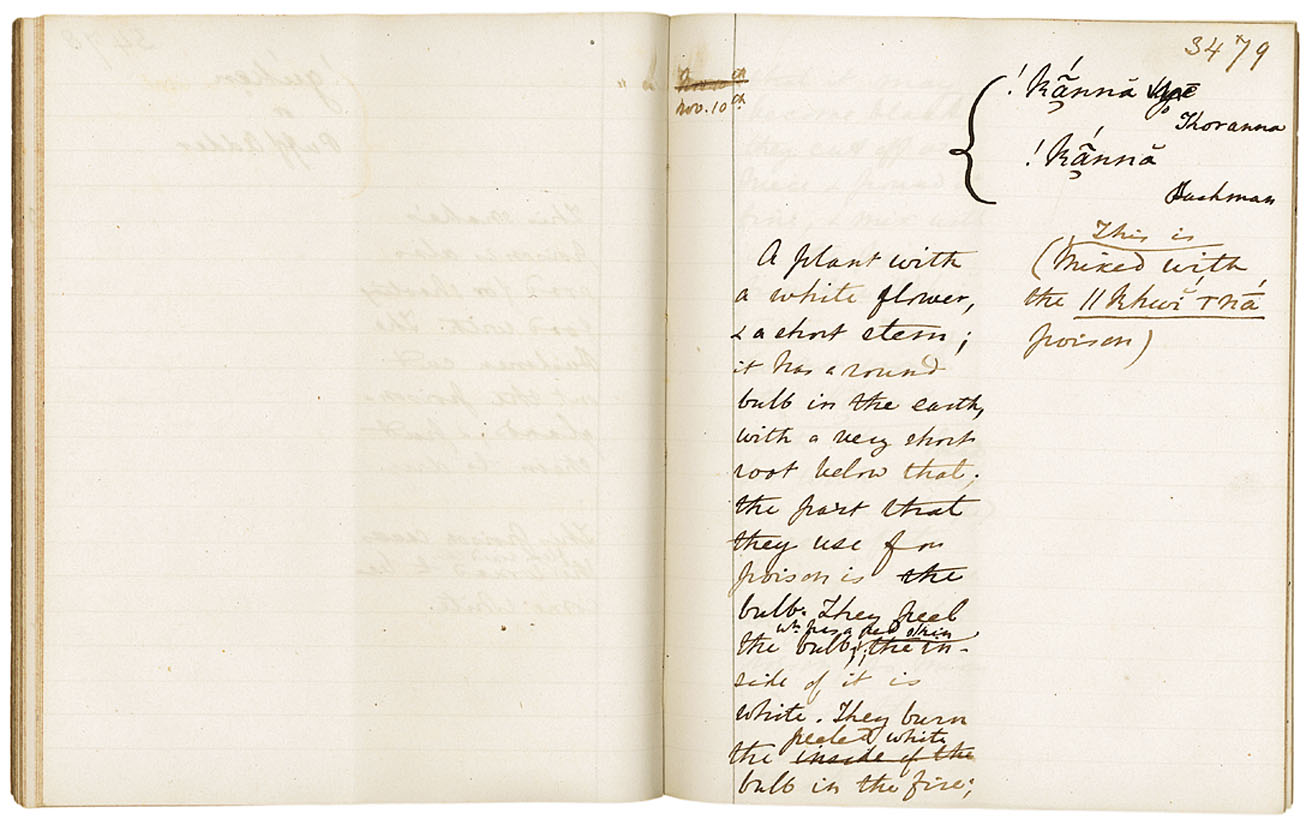 3479
Nov. 10th
!kánnā
Khoranna
!kánnă
Bushman
A plant with
a white flower,
& a short stem;
it has a round
bulb in the earth,
with a very short
root below that;
the part that
they use for
poison is the
bulb. They peel
wh has a red skin
the bulb; the in-
side of it is
white. They burn
peeled white
the inside of the
bulb in the fire;
This is
(mixed with
the ||khwi
poison)